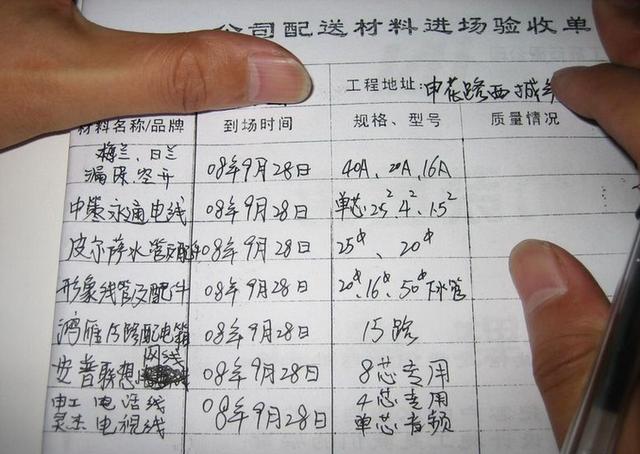 公司配送材料进场验收单
工程地址:申花路西城年
材料名称/品牌 到场时间 规格、型号 质量情况
梅兰、日兰
漏保.空开 08年9月28日 40A、20A、16A
中策永通电线 08年9月28日 单芯2.5² 4² 1.5²
皮尔萨水管及配件 08年9月28日 25Φ、20Φ
形象线管及配件 08年9月28日 20Φ、16Φ、50Φ下水管
鸿雁15路配电箱 08年9月28日 15路
网线
安普联想 08年9月28日 8芯专用
电工电话线 08年9月28日 4芯专用
吴杰电视线 单芯音频